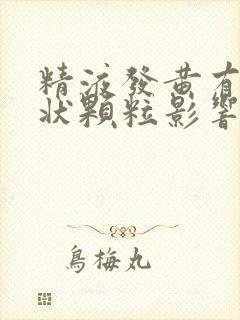 精液發黄有
狀顆粒影響
烏梅丸